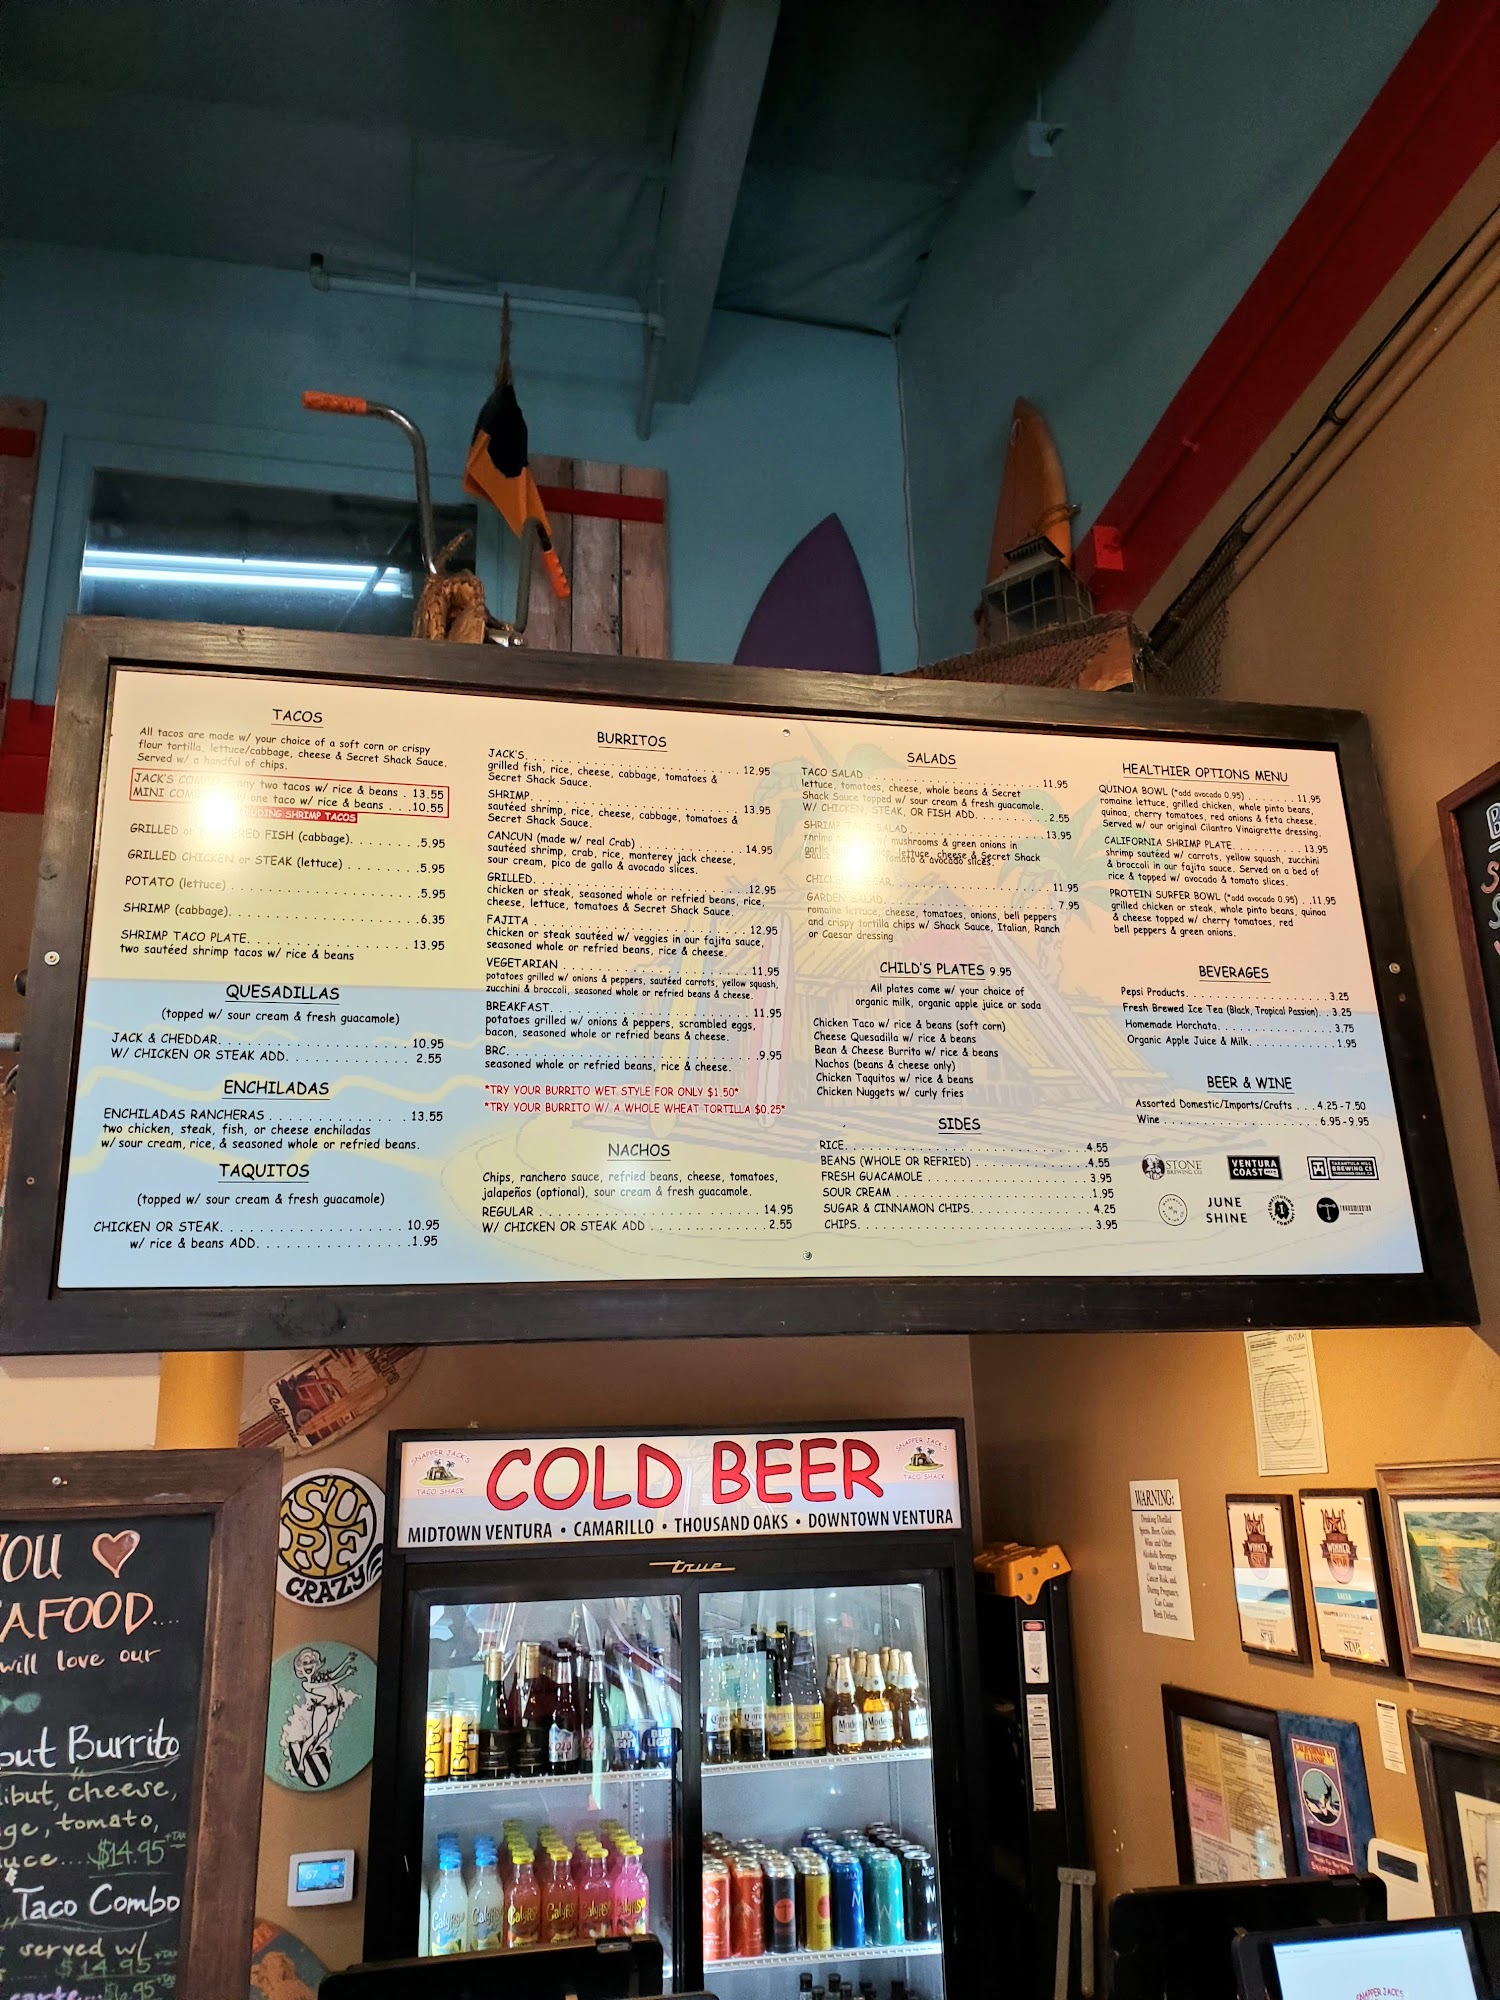 TACOS
All tacos are made w/ your choice of a soft corn or crispy
flour tortilla, lettuce/cabbage, cheese & Secret Shack Sauce.
Served w/ a handful of chips.
JACK'S any two tacos w/ rice & beans . 13.55
MINI any one taco w/ rice & beans . . .10.55
SHRIMP TACOS
GRILLED or FISH (cabbage). . . . . . . .5.95
GRILLED CHICKEN or STEAK (lettuce) . . . . . . . .5.95
POTATO (lettuce) . . . . . . . . . . . . . . . . . . .5.95
SHRIMP (cabbage). . . . . . . . . . . . . . . . . . .6.35
SHRIMP TACO PLATE. . . . . . . . . . . . . . . . 13.95
two sautéed shrimp tacos w/ rice & beans
QUESADILLAS
(topped w/ sour cream & fresh guacamole)
JACK & CHEDDAR. . . . . . . . . . . . . . . . . . . 10.95
W/ CHICKEN OR STEAK ADD. . . . . . . . . . . . . 2.55
ENCHILADAS
ENCHILADAS RANCHERAS . . . . . . . . . . . . . . 13.55
two chicken, steak, fish, or cheese enchiladas
w/ sour cream, rice, & seasoned whole or refried beans.
TAQUITOS
(topped w/ sour cream & fresh guacamole)
CHICKEN OR STEAK. . . . . . . . . . . . . . . . . . 10.95
w/ rice & beans ADD. . . . . . . . . . . . . . . .1.95
BURRITOS
JACK'S. . . . . . . . . . . . . . . . . . . . . . . 12.95
grilled fish, rice, cheese, cabbage, tomatoes &
Secret Shack Sauce.
SHRIMP. . . . . . . . . . . . . . . . . . . . . . . 13.95
sautéed shrimp, rice, cheese, cabbage, tomatoes &
Secret Shack Sauce.
CANCUN (made w/ real Crab) . . . . . . . . . . . . 14.95
sautéed shrimp, crab, rice, monterey jack cheese,
sour cream, pico de gallo & avocado slices.
GRILLED. . . . . . . . . . . . . . . . . . . . . . .12.95
chicken or steak, seasoned whole or refried beans, rice,
cheese, lettuce, tomatoes & Secret Shack Sauce.
FAJITA . . . . . . . . . . . . . . . . . . . . . . . 12.95
chicken or steak sautéed w/ veggies in our fajita sauce,
seasoned whole or refried beans, rice & cheese.
VEGETARIAN . . . . . . . . . . . . . . . . . . . . 11.95
potatoes grilled w/ onions & peppers, sautéed carrots, yellow squash,
zucchini & broccoli, seasoned whole or refried beans & cheese.
BREAKFAST. . . . . . . . . . . . . . . . . . . . . 11.95
potatoes grilled w/ onions & peppers, scrambled eggs,
bacon, seasoned whole or refried beans & cheese.
BRC. . . . . . . . . . . . . . . . . . . . . . . . . .9.95
seasoned whole or refried beans, rice & cheese.
*TRY YOUR BURRITO WET STYLE FOR ONLY $1.50*
*TRY YOUR BURRITO W/ A WHOLE WHEAT TORTILLA $0.25*
NACHOS
Chips, ranchero sauce, refried beans, cheese, tomatoes,
jalapeños (optional), sour cream & fresh guacamole.
REGULAR . . . . . . . . . . . . . . . . . . . . . . 14.95
W/ CHICKEN OR STEAK ADD . . . . . . . . . . . . .2.55
SALADS
TACO SALAD . . . . . . . . . . . . . . . . . . . 11.95
lettuce, tomatoes, cheese, whole beans & Secret
Shack Sauce topped w/ sour cream & fresh guacamole.
W/ CHICKEN, STEAK, OR FISH ADD. . . . . . . . 2.55
SHRIMP SALAD. . . . . . . . . . . . . . . 13.95
shrimp w/ mushrooms & green onions in
garlic lettuce, cheese & Secret Shack
Sauce tomato & avocado slices.
CHICKEN . . . . . . . . . . . . . . . . 11.95
GARDEN SALAD. . . . . . . . . . . . . . . . . . 7.95
romaine lettuce, cheese, tomatoes, onions, bell peppers
and crispy tortilla chips w/ Shack Sauce, Italian, Ranch
or Caesar dressing
CHILD'S PLATES 9.95
All plates come w/ your choice of
organic milk, organic apple juice or soda
Chicken Taco w/ rice & beans (soft corn)
Cheese Quesadilla w/ rice & beans
Bean & Cheese Burrito w/ rice & beans
Nachos (beans & cheese only)
Chicken Taquitos w/ rice & beans
Chicken Nuggets w/ curly fries
SIDES
RICE. . . . . . . . . . . . . . . . . . . . . . . .4.55
BEANS (WHOLE OR REFRIED) . . . . . . . . . . .4.55
FRESH GUACAMOLE . . . . . . . . . . . . . . . . 3.95
SOUR CREAM . . . . . . . . . . . . . . . . . . . .1.95
SUGAR & CINNAMON CHIPS. . . . . . . . . . . . 4.25
CHIPS. . . . . . . . . . . . . . . . . . . . . . . 3.95
HEALTHIER OPTIONS MENU
QUINOA BOWL (*add avocado 0.95) . . . . . . . . 11.95
romaine lettuce, grilled chicken, whole pinto beans,
quinoa, cherry tomatoes, red onions & feta cheese.
Served w/ our original Cilantro Vinaigrette dressing.
CALIFORNIA SHRIMP PLATE. . . . . . . . . . . . 13.95
shrimp sautéed w/ carrots, yellow squash, zucchini
& broccoli in our fajita sauce. Served on a bed of
rice & topped w/ avocado & tomato slices.
PROTEIN SURFER BOWL (*add avocado 0.95) . .11.95
grilled chicken or steak, whole pinto beans, quinoa
& cheese topped w/ cherry tomatoes, red
bell peppers & green onions.
BEVERAGES
Pepsi Products. . . . . . . . . . . . . . . . . . . . 3.25
Fresh Brewed Ice Tea (Black, Tropical Passion). . 3.25
Homemade Horchata. . . . . . . . . . . . . . . . 3.75
Organic Apple Juice & Milk. . . . . . . . . . . . 1.95
BEER & WINE
Assorted Domestic/Imports/Crafts . . . 4.25-7.50
Wine . . . . . . . . . . . . . . . . . . . . 6.95-9.95
STONE
BREWING CO.
VENTURA
COAST
TARANTULA HILL
BREWING CO
JUNE
SHINE
TRANSMISSION
SNAPPER JACK'S
TACO SHACK
COLD BEER
SNAPPER JACK'S
TACO SHACK
MIDTOWN VENTURA • CAMARILLO • THOUSAND OAKS • DOWNTOWN VENTURA
true
SURE
CRAZY
California
YOU
AFOOD....
will love our
Burrito
libut, cheese,
tomato,
$14.95 +TAX
&
Taco Combo
served w/
$14.95
6.95
WARNING:
Drinking Distilled
Spirits, Beer, Coolers,
Wine and Other
Alcoholic Beverages
May Increase
Cancer Risk, and,
During Pregnancy,
Can Cause
Birth Defects
VENTURA
WINNER
STAR
WINNER
STAR
SALSA
Corona
Modelo
Modelo
BUD
LIGHT
BUD
LIGHT
Calypso
Calypso
Calypso
Calypso
Calypso
67
SNAPPER JACK'S